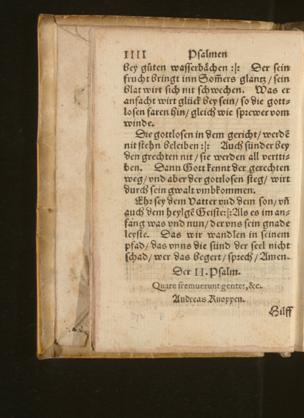 IIII Psalmen
bey gůten wasserbächen :|: Der sein
frucht bringt inn Som̃ers glantz / sein
blat wirt sich nit schwechen. Was er
anfacht wirt glück bey sein / so die gott-
losen faren hin / gleich wie sprewer vom
winde.
Die gottlosen in dem gericht / werdẽ
nit stehn beleiben :|: Auch sünder bey
den grechten nit / sie werden all vertri-
ben. Dann Gott kennt der gerechten
weg / vnd aber der gottlosen steg / wirt
durch sein gwalt vmbkommen.
Ehr sey dem Vatter vnd dem son / vñ
auch dem heylgẽ Geiste :|: Als es im an-
fang was vnd nun / der vns sein gnade
leyste. Das wir wandlen in seinem
pfad / das vnns die sünd der seel nicht
schad / wer das begert / sprech / Amen.
Der II. Psalm.
Quare fremuerunt gentes, &c.
Andreas Knoppen.
Hilff